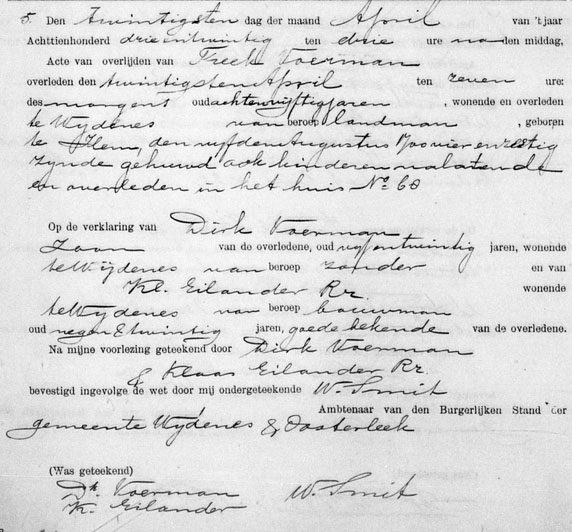 5. Den twintigsten dag der maand April van 't jaar
Achttienhonderd drie en twintig ten drie ure na den middag,
Acte van overlijden van Freek Voerman
overleden den twintigsten April ten zeven ure:
des morgens oud acht en vijftig jaren, wonende en overleden
te Wydenes van beroep landman, geboren
te Hem, den vijfden Augustus 17 vier en zestig
zynde gehuwd ook kinderen nalatende
en overleden in het huis No 60
Op de verklaring van Dirk Voerman
Zoon van de overledene, oud vyf en twintig jaren, wonende
te Wijdenes van beroep zonder en van
Kl. Eilander Rz. wonende
te Wydenes van beroep bouwman
oud negen & twintig jaren, goede bekende van de overledene.
Na mijne voorlezing geteekend door Dirk Voerman
& Klaas Eilander Rz.
bevestigd ingevolge de wet door mij ondergeteekende W. Smit
Ambtenaar van den Burgerlijken Stand der
gemeente Wydenes & Oosterleek
(Was geteekend)
Dk. Voerman W. Smit
K. Eilander